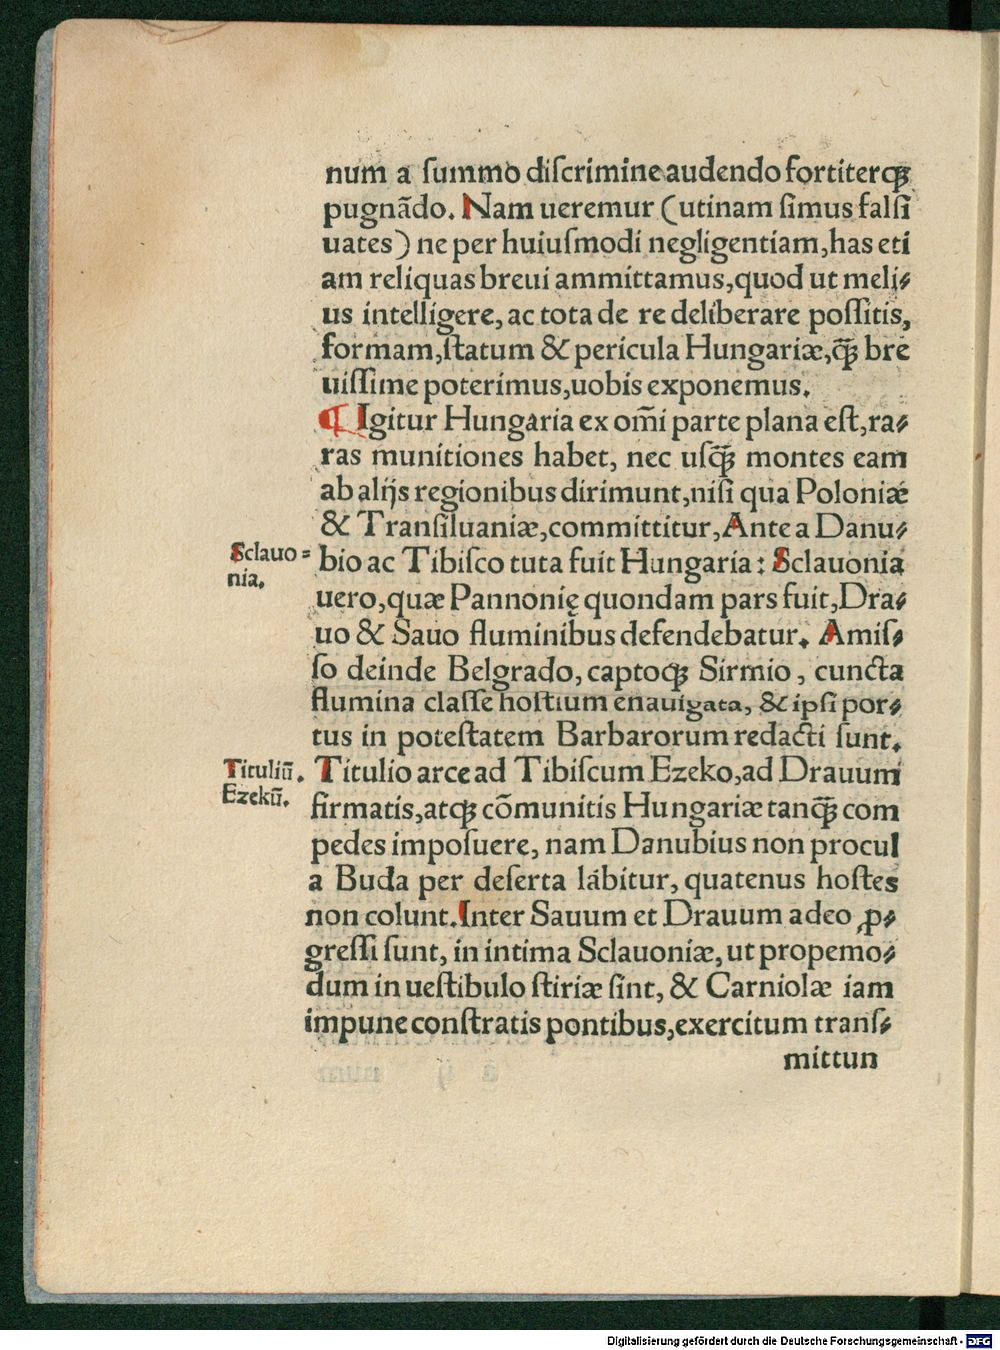 num a ſummo diſcrimine audendo fortiterqꝫ
pugnādo. Nam ueremur (utinam ſimus falſi
uates) ne per huiuſmodi negligentiam,has eti
am reliquas breui ammittamus,quod ut meli⸗
us intelligere, ac tota de re deliberare poſſitis,
formam,ſtatum & pericula Hungariæ,q̄ꝫ bre
uiſſime poterimus,uobis exponemus.
¶ Igitur Hungaria ex om̄i parte plana eſt,ra⸗
ras munitiones habet, nec uſq̄ꝫ montes eam
ab alijs regionibus dirimunt,niſi qua Poloniæ
& Tranſiluaniæ,committitur,Ante a Danu⸗
Sclauo⸗
nia.
bio ac Tibiſco tuta fuit Hungaria: Sclauonia
uero,quæ Pannonię quondam pars fuit,Dra⸗
uo & Sauo fluminibus defendebatur. Amiſ⸗
ſo deinde Belgrado, captoqꝫ Sirmio, cuncta
flumina claſſe hoſtium enauigata, & ipſi por⸗
tus in poteſtatem Barbarorum redacti ſunt.
Tituliū.
Ezekū.
Titulio arce ad Tibiſcum Ezeko,ad Drauum
firmatis,atqꝫ cōmunitis Hungariæ tanq̄ꝫ com
pedes impoſuere, nam Danubius non procul
a Buda per deſerta lābitur, quatenus hoſtes
non colunt.Inter Sauum et Drauum adeo ꝓ⸗
greſſi ſunt, in intima Sclauoniæ, ut propemo⸗
dum in ueſtibulo ſtiriæ ſint, & Carniolæ iam
impune conſtratis pontibus,exercitum tranſ⸗
mittun
Digitalisierung gefördert durch die Deutsche Forschungsgemeinschaft - DFG